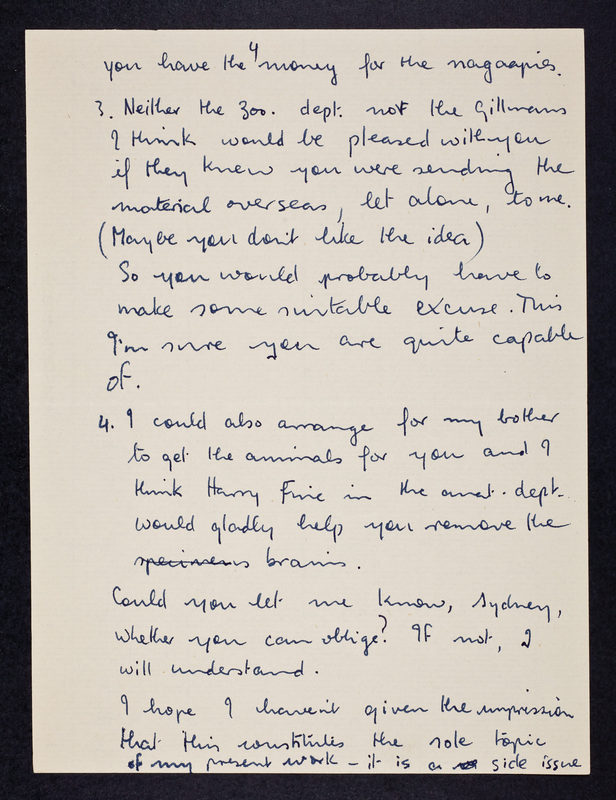 4
you have the money for the nagaapies.
3. Neither the Zoo. dept. not the Gillmans
I think would be pleased with you
if they knew you were sending the
material overseas, let alone, to me.
(Maybe you don't like the idea)
So you would probably have to
make some suitable excuse. This
I'm sure you are quite capable
of.
4. I could also arrange for my bother
to get the animals for you and I
think Harry Fine in the anat. dept.
would gladly help you remove the
specimens brains.
Could you let me know, Sydney,
whether you can oblige? If not, I
will understand.
I hope I haven't given the impression
that this constitutes the sole topic
of my present work – it is a side issue